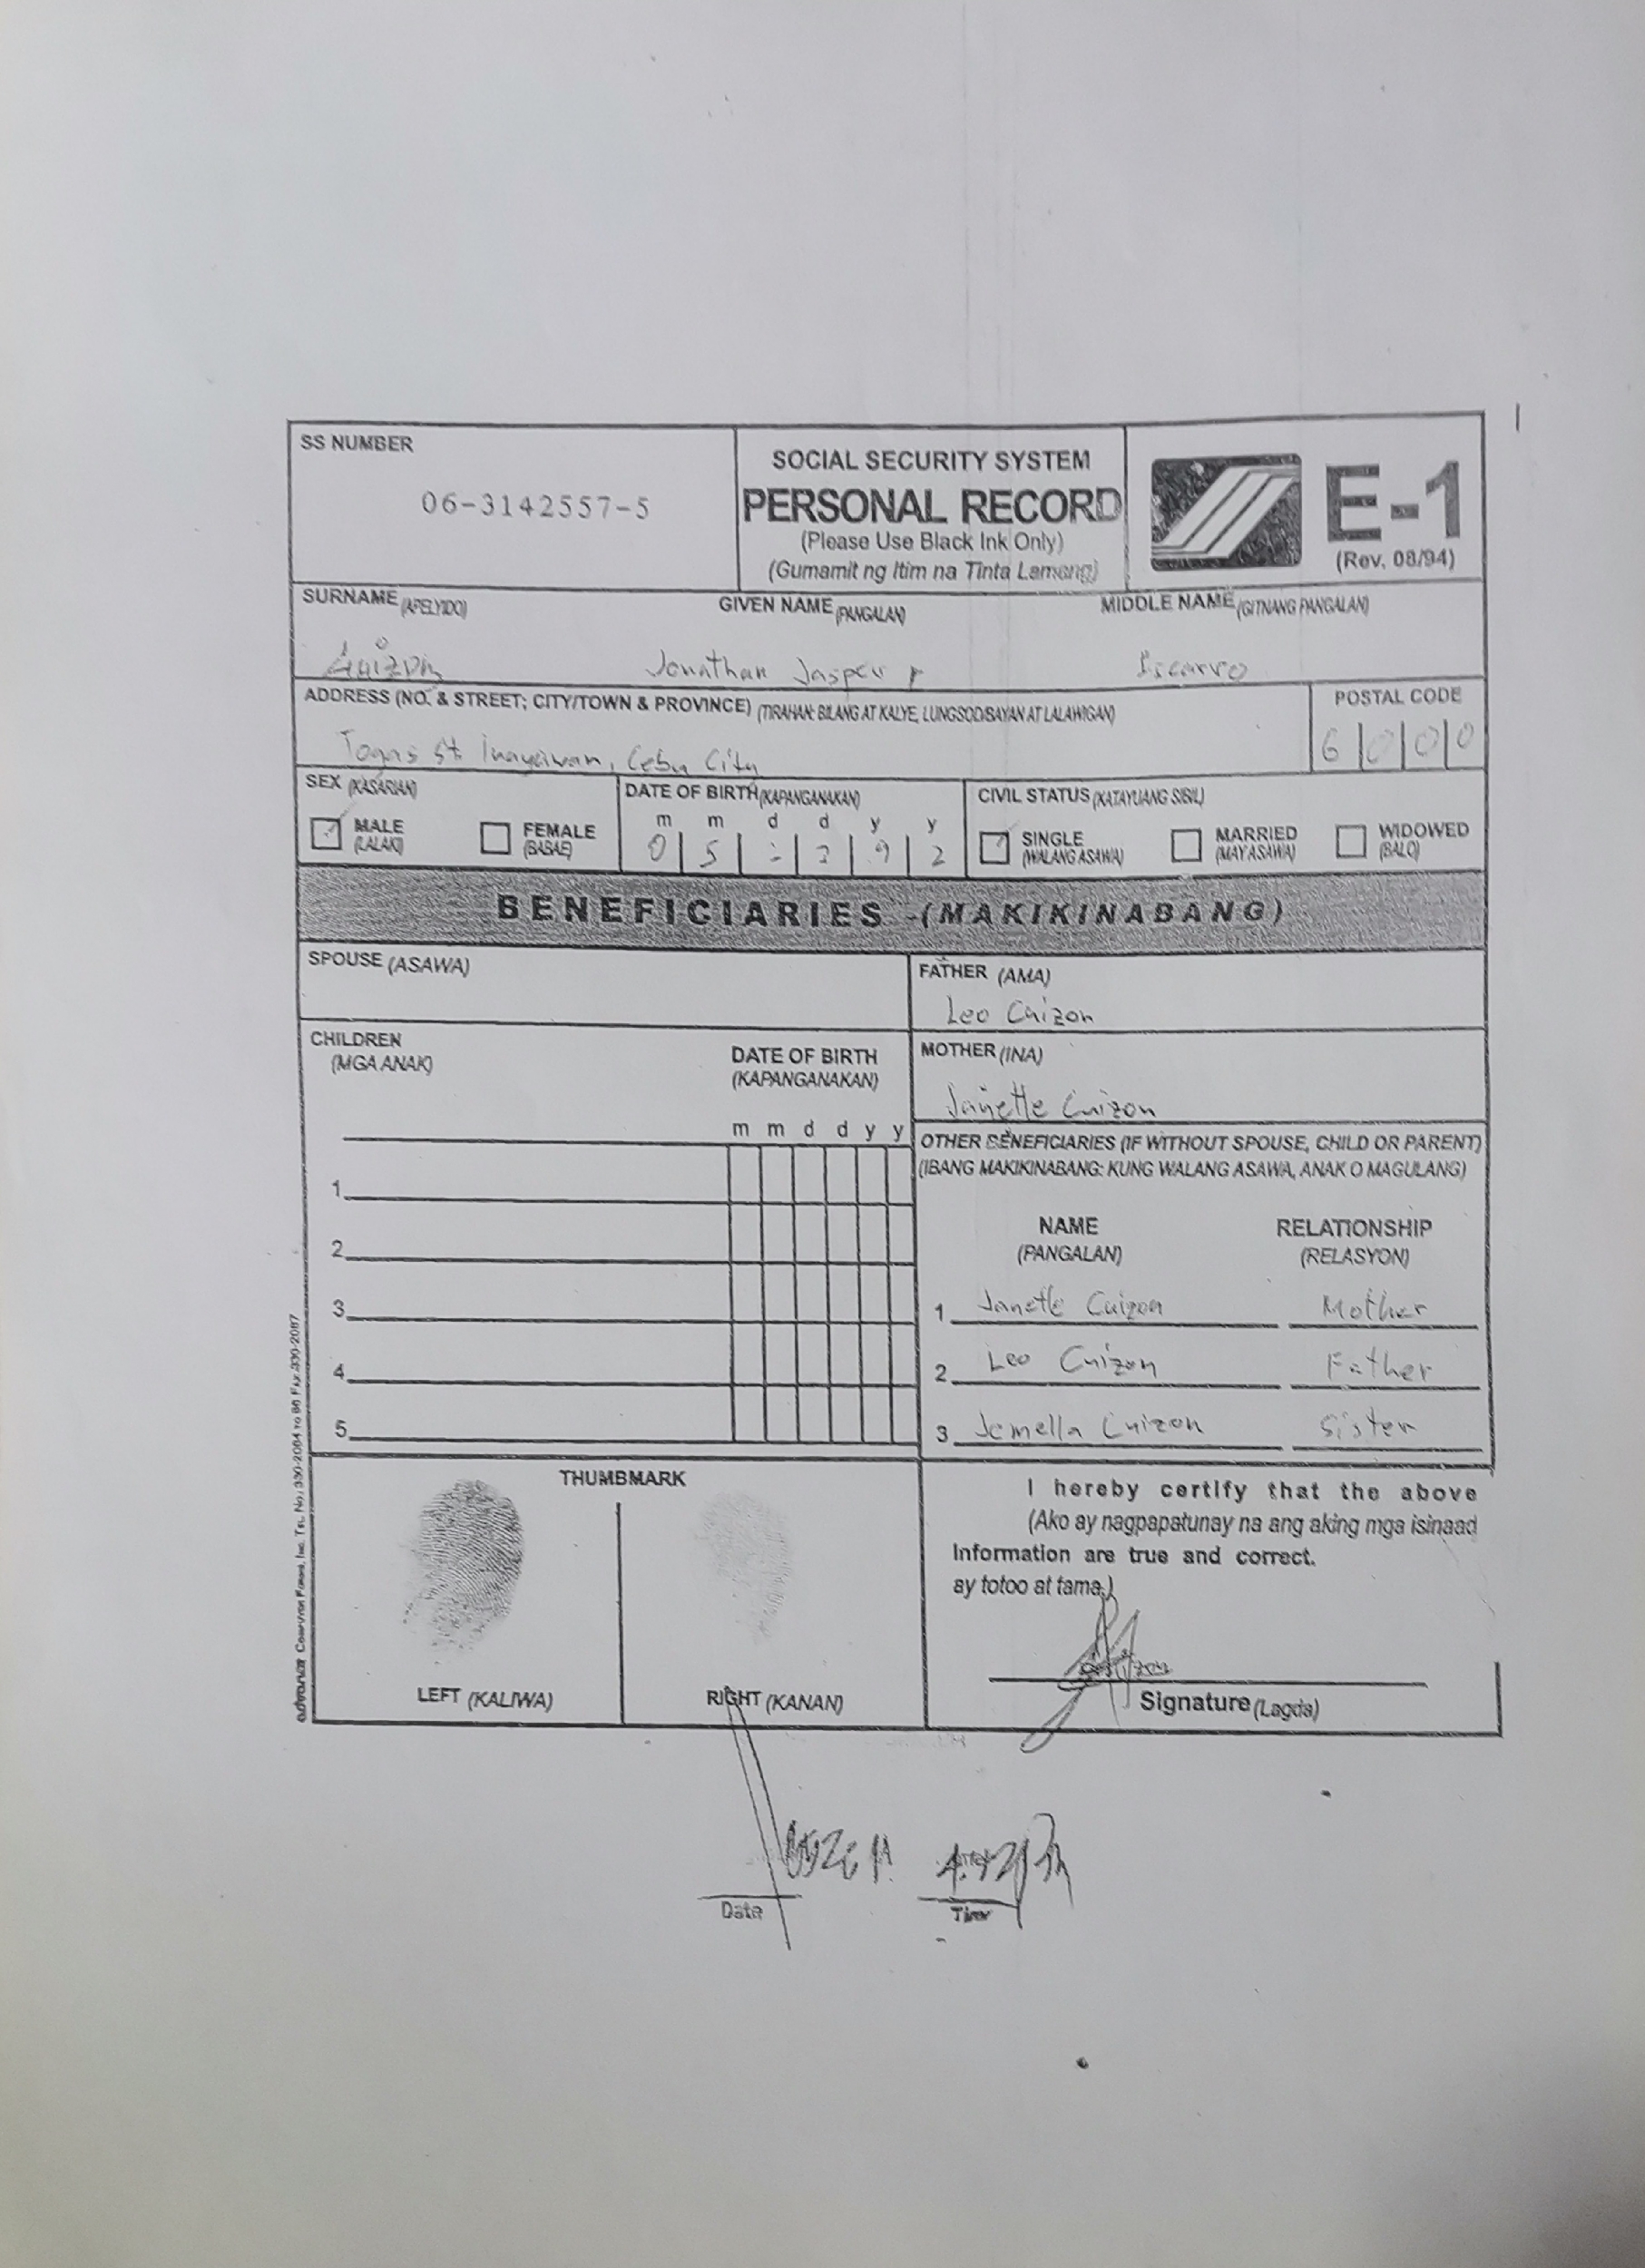 SS NUMBER
06-3142557-5
SOCIAL SECURITY SYSTEM
PERSONAL RECORD
(Please Use Black Ink Only)
(Gumamit ng Itim na Tinta Lamang)
E-1
(Rev. 08/94)
SURNAME (APELYIDO) GIVEN NAME (PANGALAN) MIDDLE NAME (GITNANG PANGALAN)
Cuizon Jonathan Jasper Escarro
ADDRESS (NO. & STREET; CITY/TOWN & PROVINCE) (TIRAHAN: BILANG AT KALYE, LUNGSOD/BAYAN AT LALAWIGAN) POSTAL CODE
St. Inayawan, Cebu City 6 0 0 0
SEX (KASARIAN) DATE OF BIRTH (KAPANGANAKAN) CIVIL STATUS (KATAYUANG SIBIL)
m m d d y y
MALE (LALAKI) FEMALE (BABAE) 0 5 9 2 SINGLE (WALANG ASAWA) MARRIED (MAY ASAWA) WIDOWED (BALO)
BENEFICIARIES -(MAKIKINABANG)
SPOUSE (ASAWA)
FATHER (AMA)
Leo Cuizon
CHILDREN
(MGA ANAK)
DATE OF BIRTH
(KAPANGANAKAN)
m m d d y y
1
2
3
4
5
MOTHER (INA)
Janette Cuizon
OTHER BENEFICIARIES (IF WITHOUT SPOUSE, CHILD OR PARENT)
(IBANG MAKIKINABANG: KUNG WALANG ASAWA, ANAK O MAGULANG)
NAME RELATIONSHIP
(PANGALAN) (RELASYON)
1 Janette Cuizon Mother
2 Leo Cuizon Father
3 Jemella Cuizon Sister
THUMBMARK
LEFT (KALIWA) RIGHT (KANAN)
I hereby certify that the above
(Ako ay nagpapatunay na ang aking mga isinaad
Information are true and correct.
ay totoo at tama.)
Signature (Lagda)
Date Time